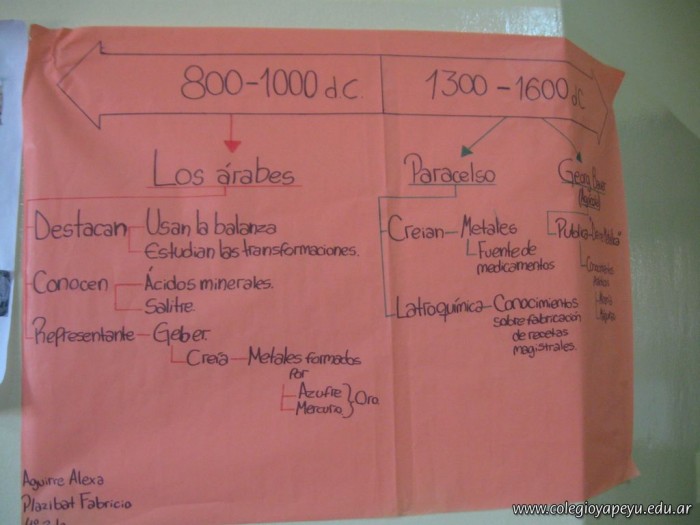 800-1000 d C.
1300-1600 d C
Los árabes
Destacan
Usan la balanza
Estudian las transformaciones.
Conocen
Ácidos minerales.
Salitre.
Representante
Geber.
Creía
Metales formados
por
Azufre
Mercurio
Oro
Paracelso
Creian
Metales
Fuente de
medicamentos
Latroquímica
Conocimientos
sobre fabricación
de recetas
magistrales.
Georg
Publica
Aguirre Alexa
Plazibat Fabricio
www.colegioyapeyu.edu.ar